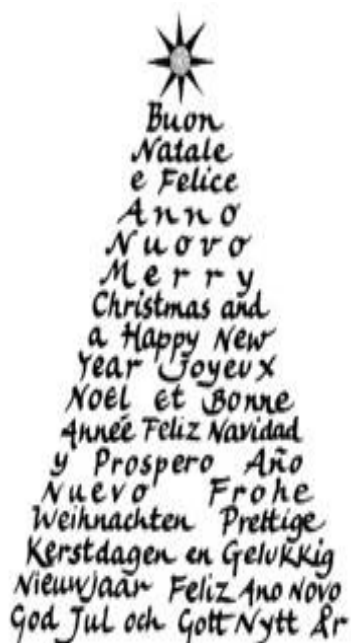 Buon
Natale
e Felice
Anno
Nuovo
Merry
Christmas and
a Happy New
Year Joyeux
Noël et Bonne
Année Feliz Navidad
y Prospero Año
Nuevo Frohe
Weihnachten Prettige
Kerstdagen en Gelukkig
Nieuwjaar Feliz Ano Novo
God Jul och Gott Nytt År